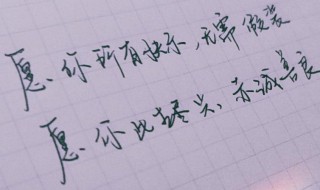 愿你所有快乐,无需假装
愿你此生尽兴,赤诚善良